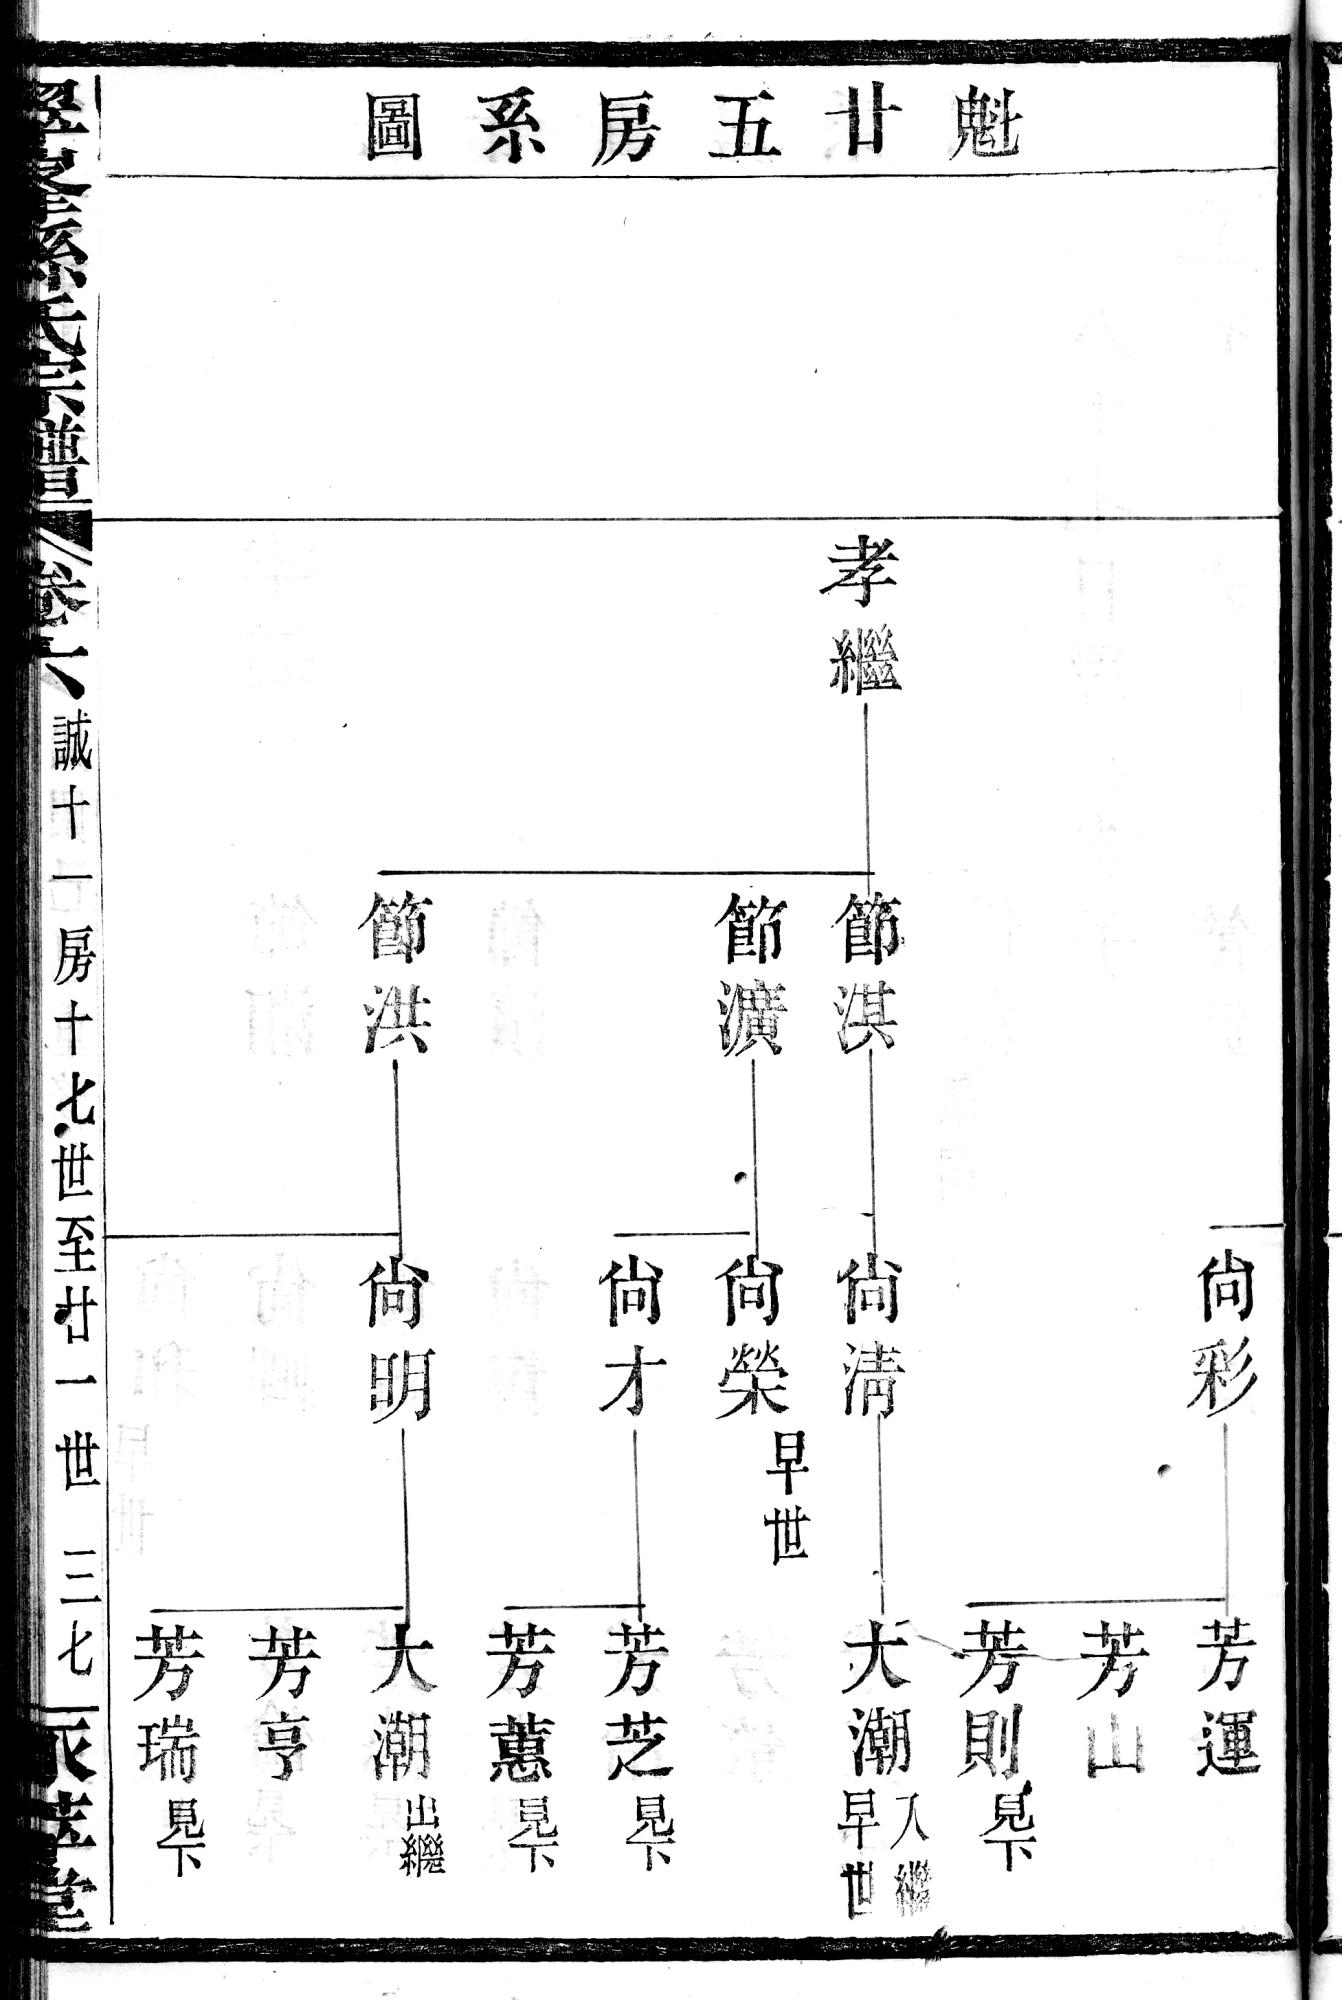 魁廿五房系圖
孝繼
節淇
節㶇
節洪
尙彩
尙淸
尙榮 早世
尙才
尙明
芳運
芳山
芳則 見下
大潮 入繼 早世
芳芝 見下
芳蕙 見下
大潮 出繼
芳亨
芳瑞 見下
孫氏宗譜
卷六
誠十一房十七世至廿一世
三七
堂